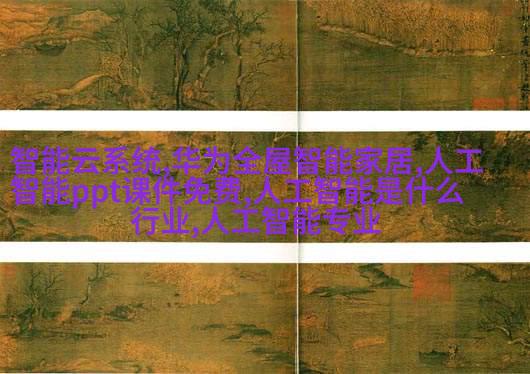 智能云系统,华为全屋智能家居,人工
智能ppt课件免费,人工智能是什么
行业,人工智能专业